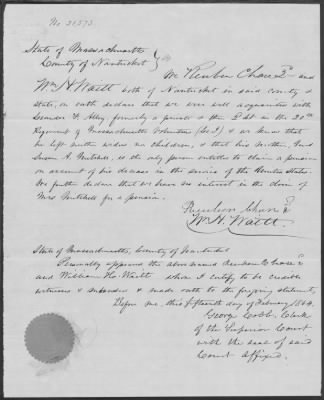 No 31593
State of Massachusetts
County of Nantucket } ss
We Reuben Chase 2d and
Wm H. Waitt both of Nantucket in said county &
State, on oath declare that we were well acquainted with
Leander F. Alley, formerly a private & then 2d Lt in the 20th
Regiment of Massachusetts Volunteers (Co. I) & we know that
he left neither widow nor children, & that his mother, 
Susan A. Mitchell, is the only person entitled to claim a pension
on account of his decease in the service of the United States.
We further declare that we have no interest in the claim of
Mrs Mitchell for a pension.
Reuben Chase 2d
Wm. H. Waitt.
State of Massachusetts, County of Nantucket
Personally appeared the above named Reuben Chase 2d
and William H. Waitt whom I certify to be credible
witnesses & made oath to the foregoing statement,
Before me, this fifteenth day of February 1864.
George Cobb, Clerk
of the Superior Court
with the seal of said
Court affixed.